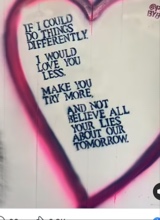 IF I COULD
DO THINGS
DIFFERENTLY.
I WOULD
LOVE YOU
LESS.
MAKE YOU
TRY MORE.
AND NOT
BELIEVE ALL
YOUR LIES
ABOUT OUR
TOMORROW.